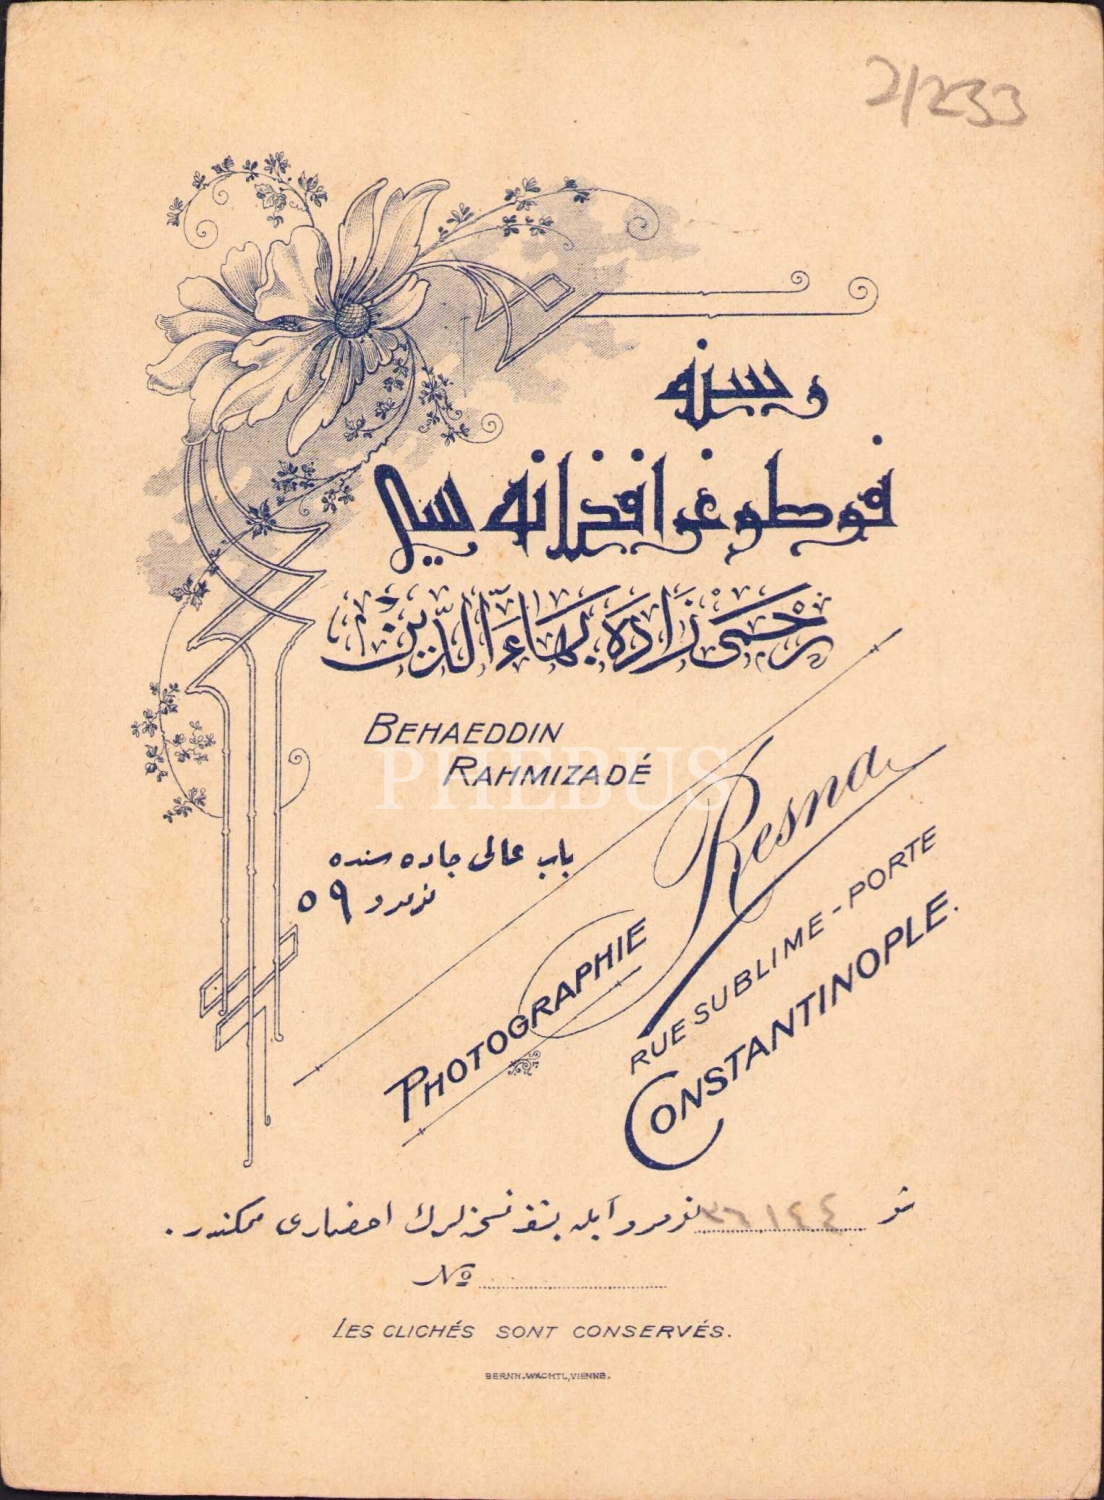 2/233
رسنه
فوطوغرافخانه سی
رحمی زاده بهاء الدین
BEHAEDDIN
RAHMIZADÉ
PHEBUS
باب عالی جاده سنده
نومرو ٥٩
PHOTOGRAPHIE Resna
RUE SUBLIME-PORTE
CONSTANTINOPLE.
شو ٣٦١٤٤ نومرو ایله بشقه نسخه لرك احضاری ممكندر.
No
LES CLICHÉS SONT CONSERVÉS.
BERNH. WACHTL, VIENNE.